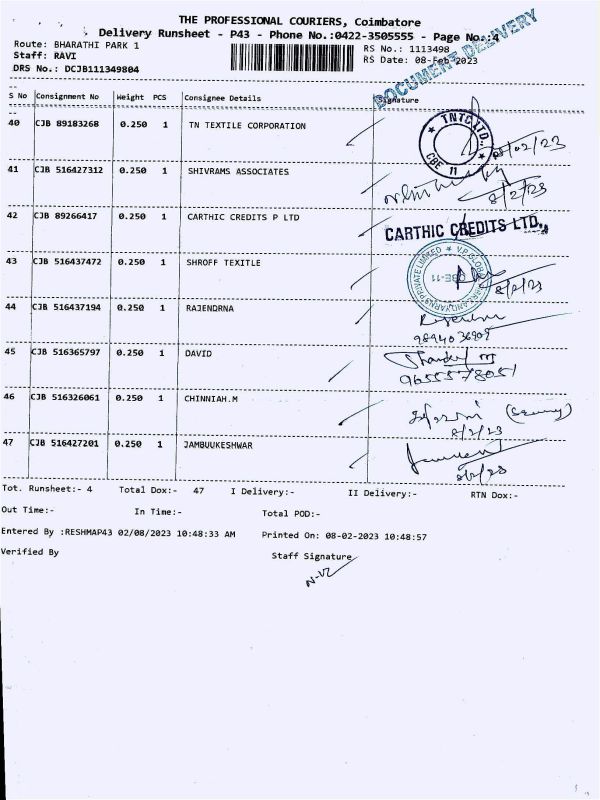 THE PROFESSIONAL COURIERS, Coimbatore
Delivery Runsheet - P43 - Phone No.:0422-3505555 - Page No.:4
Route: BHARATHI PARK 1
RS No.: 1113498
Staff: RAVI
RS Date: 08-Feb 2023
DRS No.: DCJB111349804
DOCUMENT DELIVERY
S No Consignment No Weight PCS Consignee Details Signature
40 CJB 89183268 0.250 1 TN TEXTILE CORPORATION
TNTC LTD., CBE 11
08/02/23
41 CJB 516427312 0.250 1 SHIVRAMS ASSOCIATES
8/2/23
42 CJB 89266417 0.250 1 CARTHIC CREDITS P LTD
CARTHIC CREDITS LTD.,
43 CJB 516437472 0.250 1 SHROFF TEXITLE
CBE-11
8/2/23
44 CJB 516437194 0.250 1 RAJENDRNA
9894036909
45 CJB 516365797 0.250 1 DAVID
9655578051
46 CJB 516326061 0.250 1 CHINNIAH.M
8/2/23
47 CJB 516427201 0.250 1 JAMBUUKESHWAR
Tot. Runsheet:- 4 Total Dox:- 47 I Delivery:- II Delivery:- RTN Dox:-
Out Time:- In Time:- Total POD:-
Entered By :RESHMAP43 02/08/2023 10:48:33 AM Printed On: 08-02-2023 10:48:57
Verified By Staff Signature